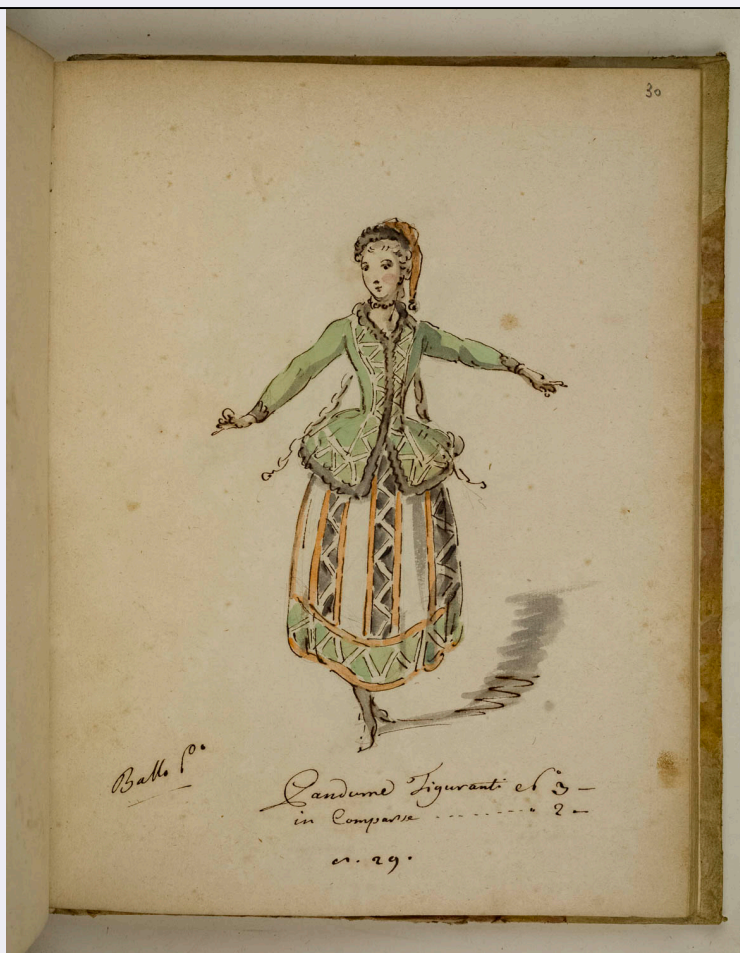 30
Ballo p.º
Pandume Figuranti nº 3 –
in Comparse - - - - - - - - " 2 –
n. 29.